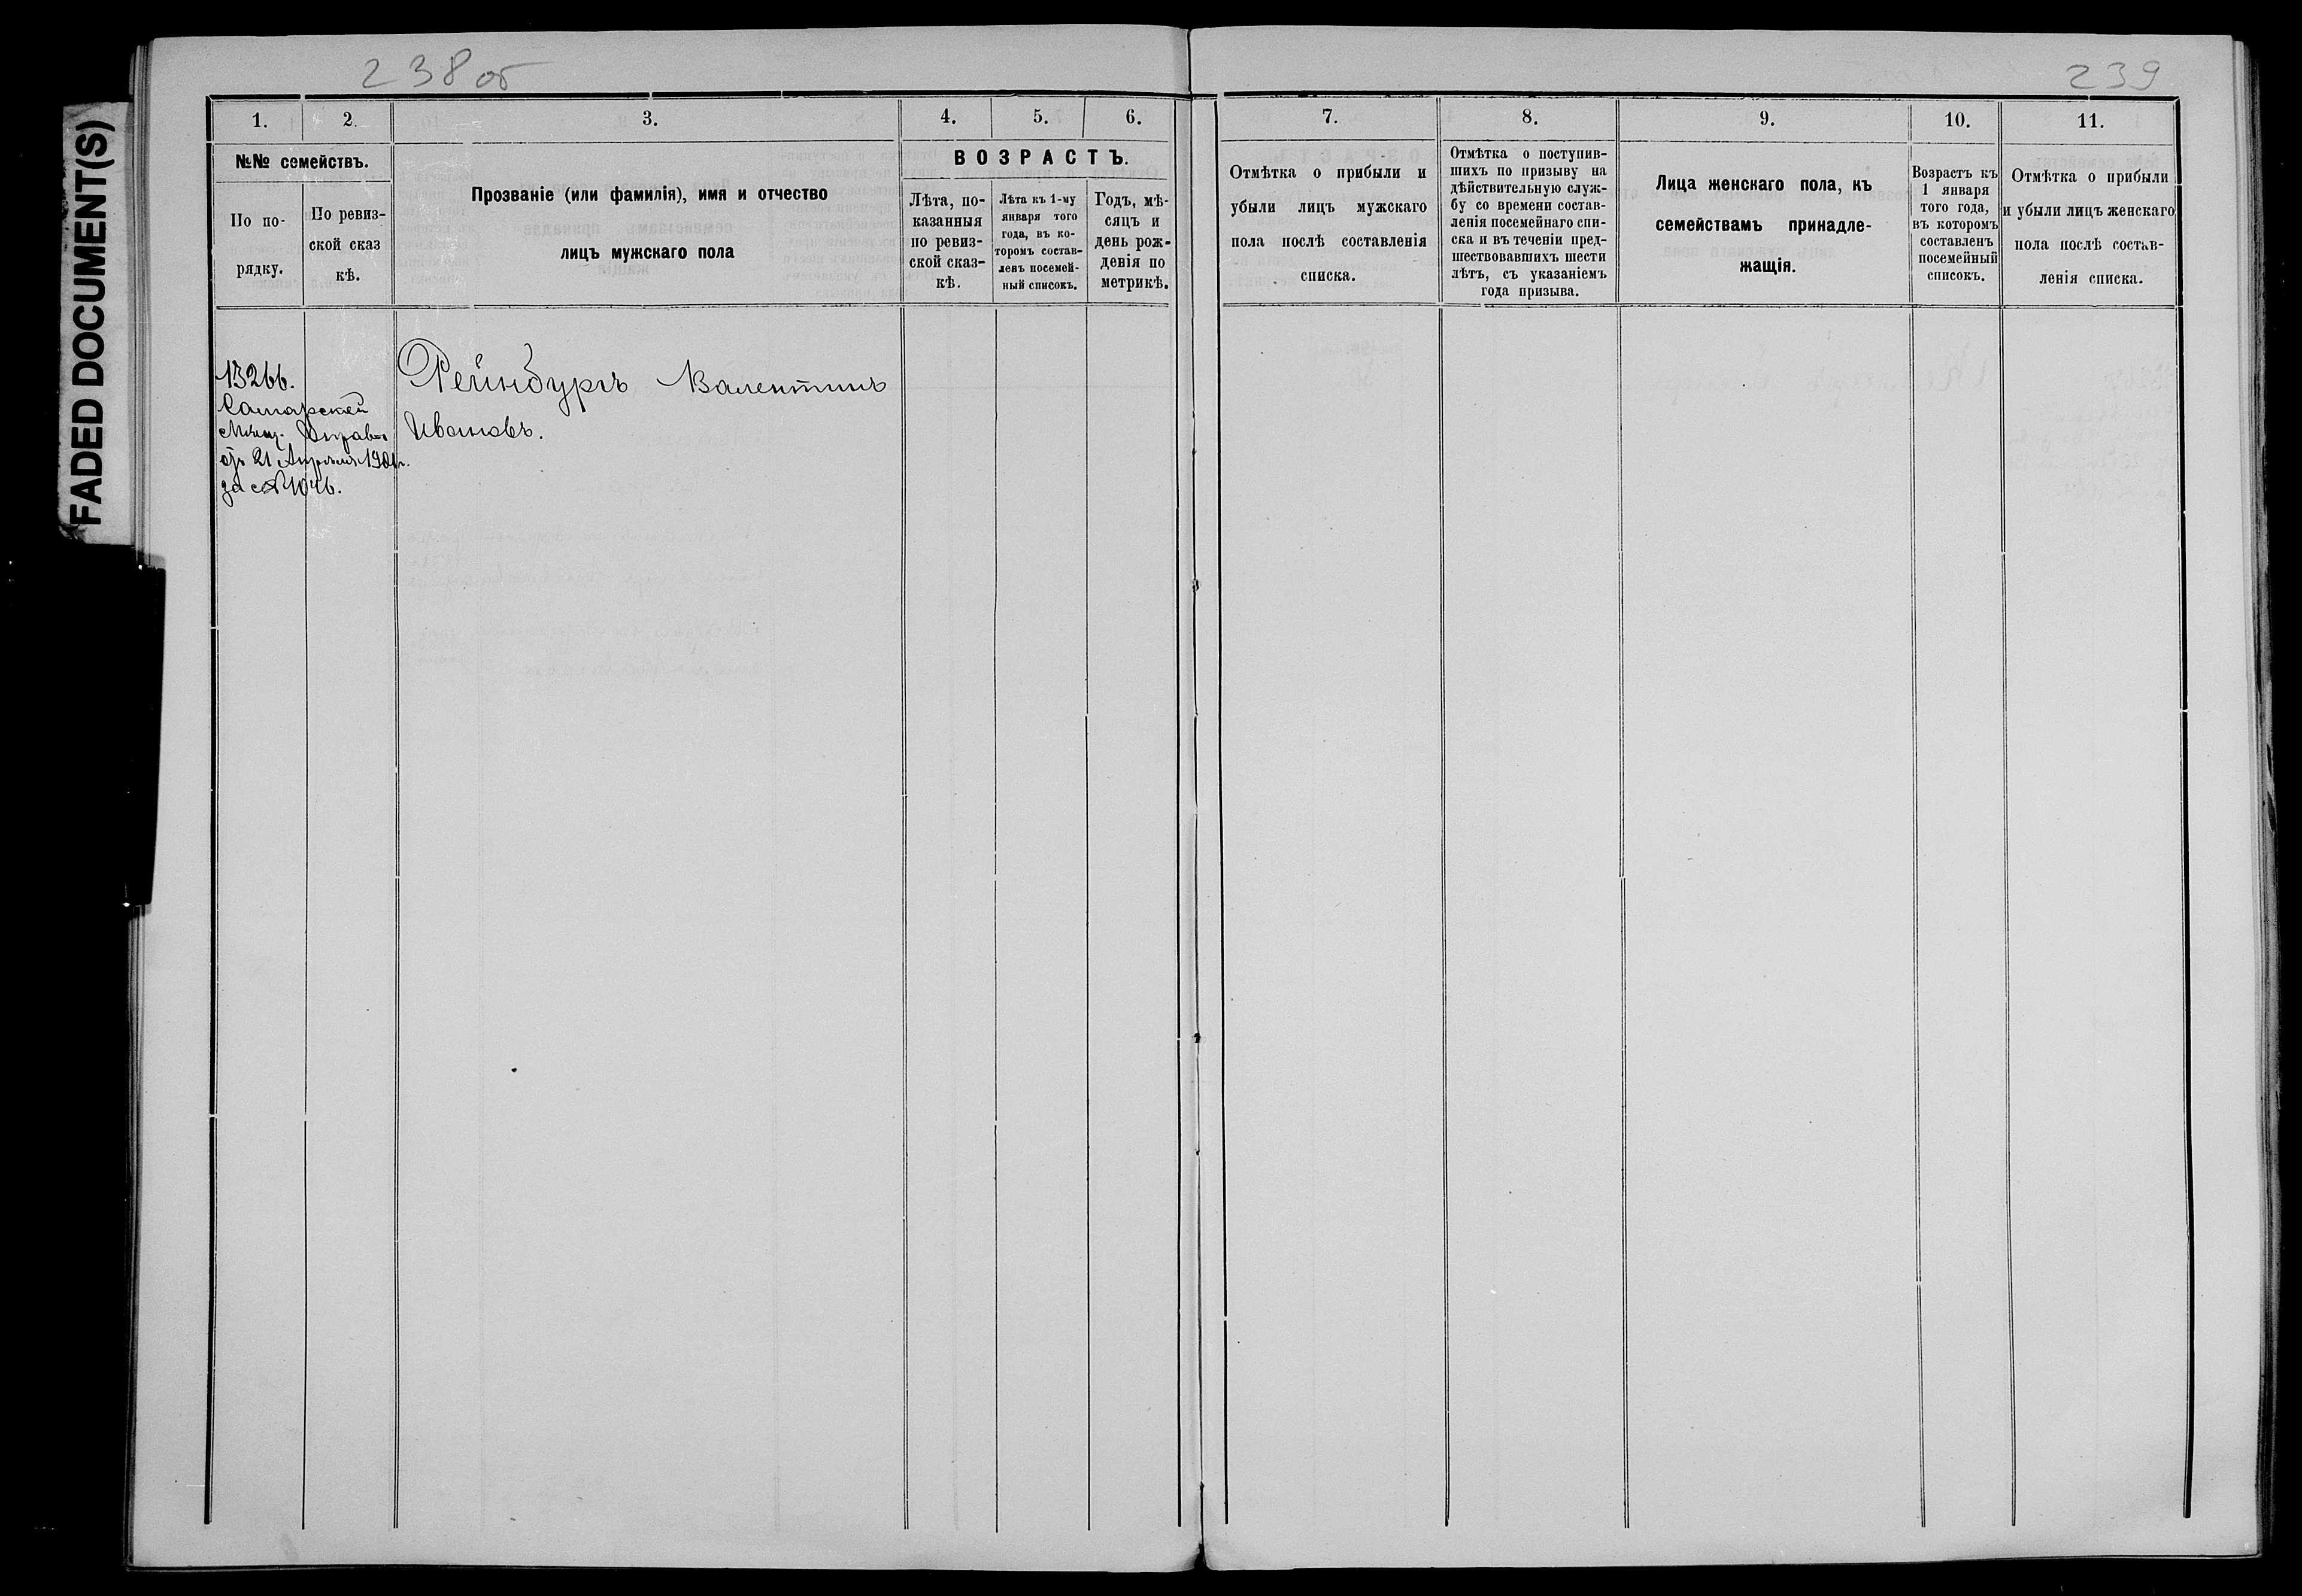 238 об
239
FADED DOCUMENT(S)
1.
2.
3.
4.
5.
6.
№№ семействъ.
По по-
рядку.
По ревиз-
ской сказ
кѣ.
Прозваніе (или фамилія), имя и отчество
лицъ мужскаго пола
ВОЗРАСТЪ.
Лѣта, по-
казанныя
по ревиз-
ской сказ-
кѣ.
Лѣта къ 1-му
января того
года, въ ко-
торомъ состав-
ленъ посемей-
ный списокъ.
Годъ, мѣ-
сяцъ и
день рож-
денія по
метрикѣ.
7.
8.
9.
10.
11.
Отмѣтка о прибыли и
убыли лицъ мужскаго
пола послѣ составленія
списка.
Отмѣтка о поступив-
шихъ по призыву на
дѣйствительную служ-
бу со времени состав-
ленія посемейнаго спи-
ска и въ теченіи пред-
шествовавшихъ шести
лѣтъ, съ указаніемъ
года призыва.
Лица женскаго пола, къ
семействамъ принадле-
жащія.
Возрастъ къ
1 января
того года,
въ которомъ
составленъ
посемейный
списокъ.
Отмѣтка о прибыли
и убыли лицъ женскаго
пола послѣ состав-
ленія списка.
13266.
Самарской
Мѣщ. Управы
отъ 21 Апрѣля
за № 1046.
Рейнбургъ Валентинъ
Ивановъ.